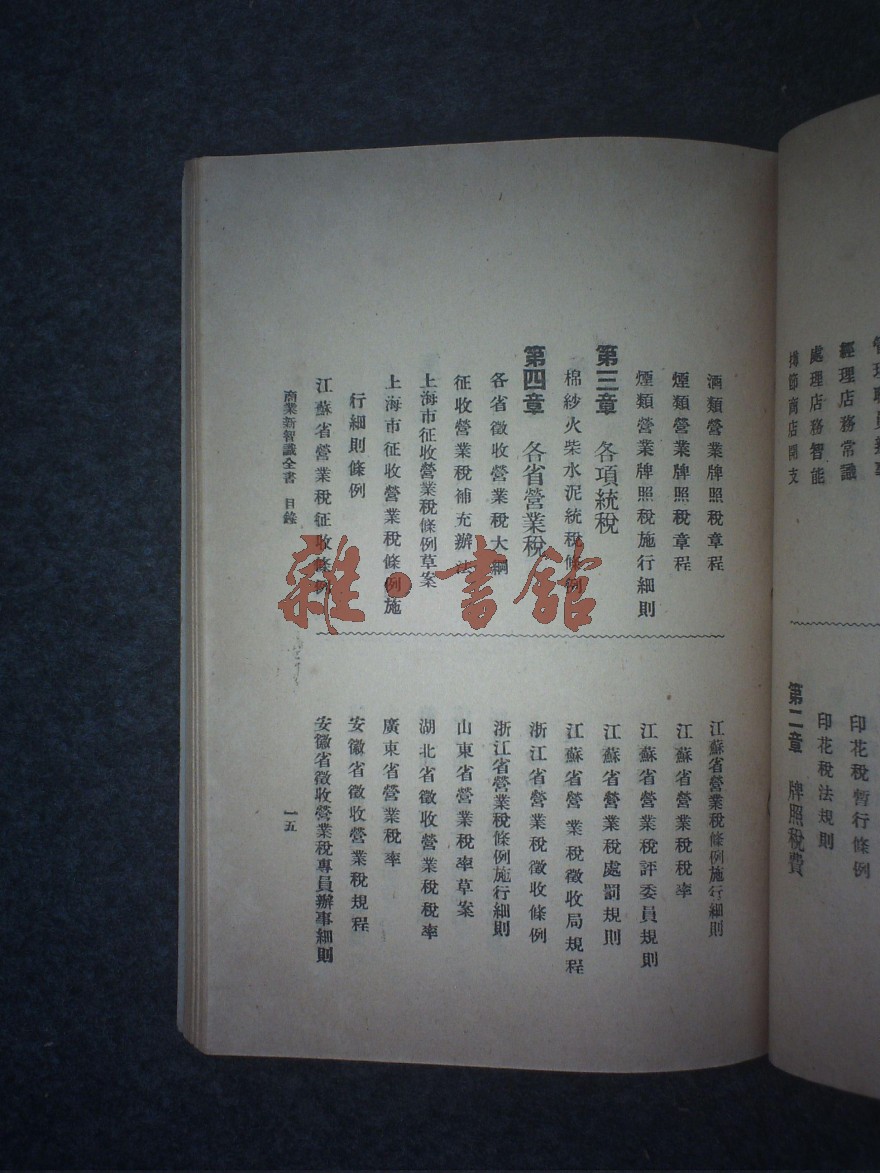 經理店務常識
處理店務智能
節商店開支
印花稅暫行條例
印花稅法規則
第二章 牌照稅費
酒類營業牌照稅章程
煙類營業牌照稅章程
煙類營業牌照稅施行細則
第三章 各項統稅
棉紗火柴水泥統稅條例
第四章 各省營業稅
各省徵收營業稅大綱
征收營業稅補充辦法
上海市征收營業稅條例草案
上海市征收營業稅條例施
行細則條例
江蘇省營業稅征收條例
江蘇省營業稅條例施行細則
江蘇省營業稅稅率
江蘇省營業稅評委員規則
江蘇省營業稅處罰規則
江蘇省營業稅徵收局規程
浙江省營業稅徵收條例
浙江省營業稅條例施行細則
山東省營業稅率草案
湖北省徵收營業稅稅率
廣東省營業稅率
安徽省徵收營業稅規程
安徽省徵收營業稅專員辦事細則
商業新智識全書 目錄
一五
雜·書館